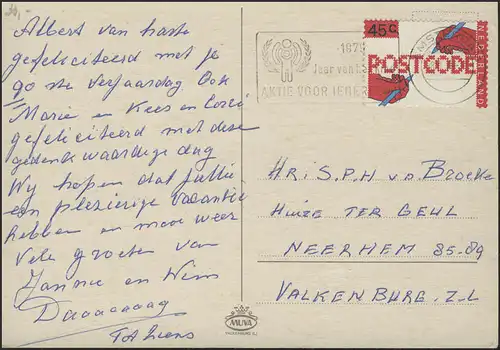 30,-
Albert van harte
gefeliciteerd met je
90 ste verjaardag Ook
Marie en Kees en Corrie
gefeliciteerd met deze
gedenkwaardige dag
Wy hopen dat jullie
een plezierige vacantie
hebben en mooi weer
Vele groeten van
Jannie en Wim
Daaaaaag
45 c
NEDERLAND
POSTCODE
1979
Jaar van
AKTIE VOOR IEDER
HR. S.P.H v.d. BROEKE
HUIZE TER GEUL
NEERHEM 85-89
VALKENBURG. Z.L
MUVA
VALKENBURG Z.L.